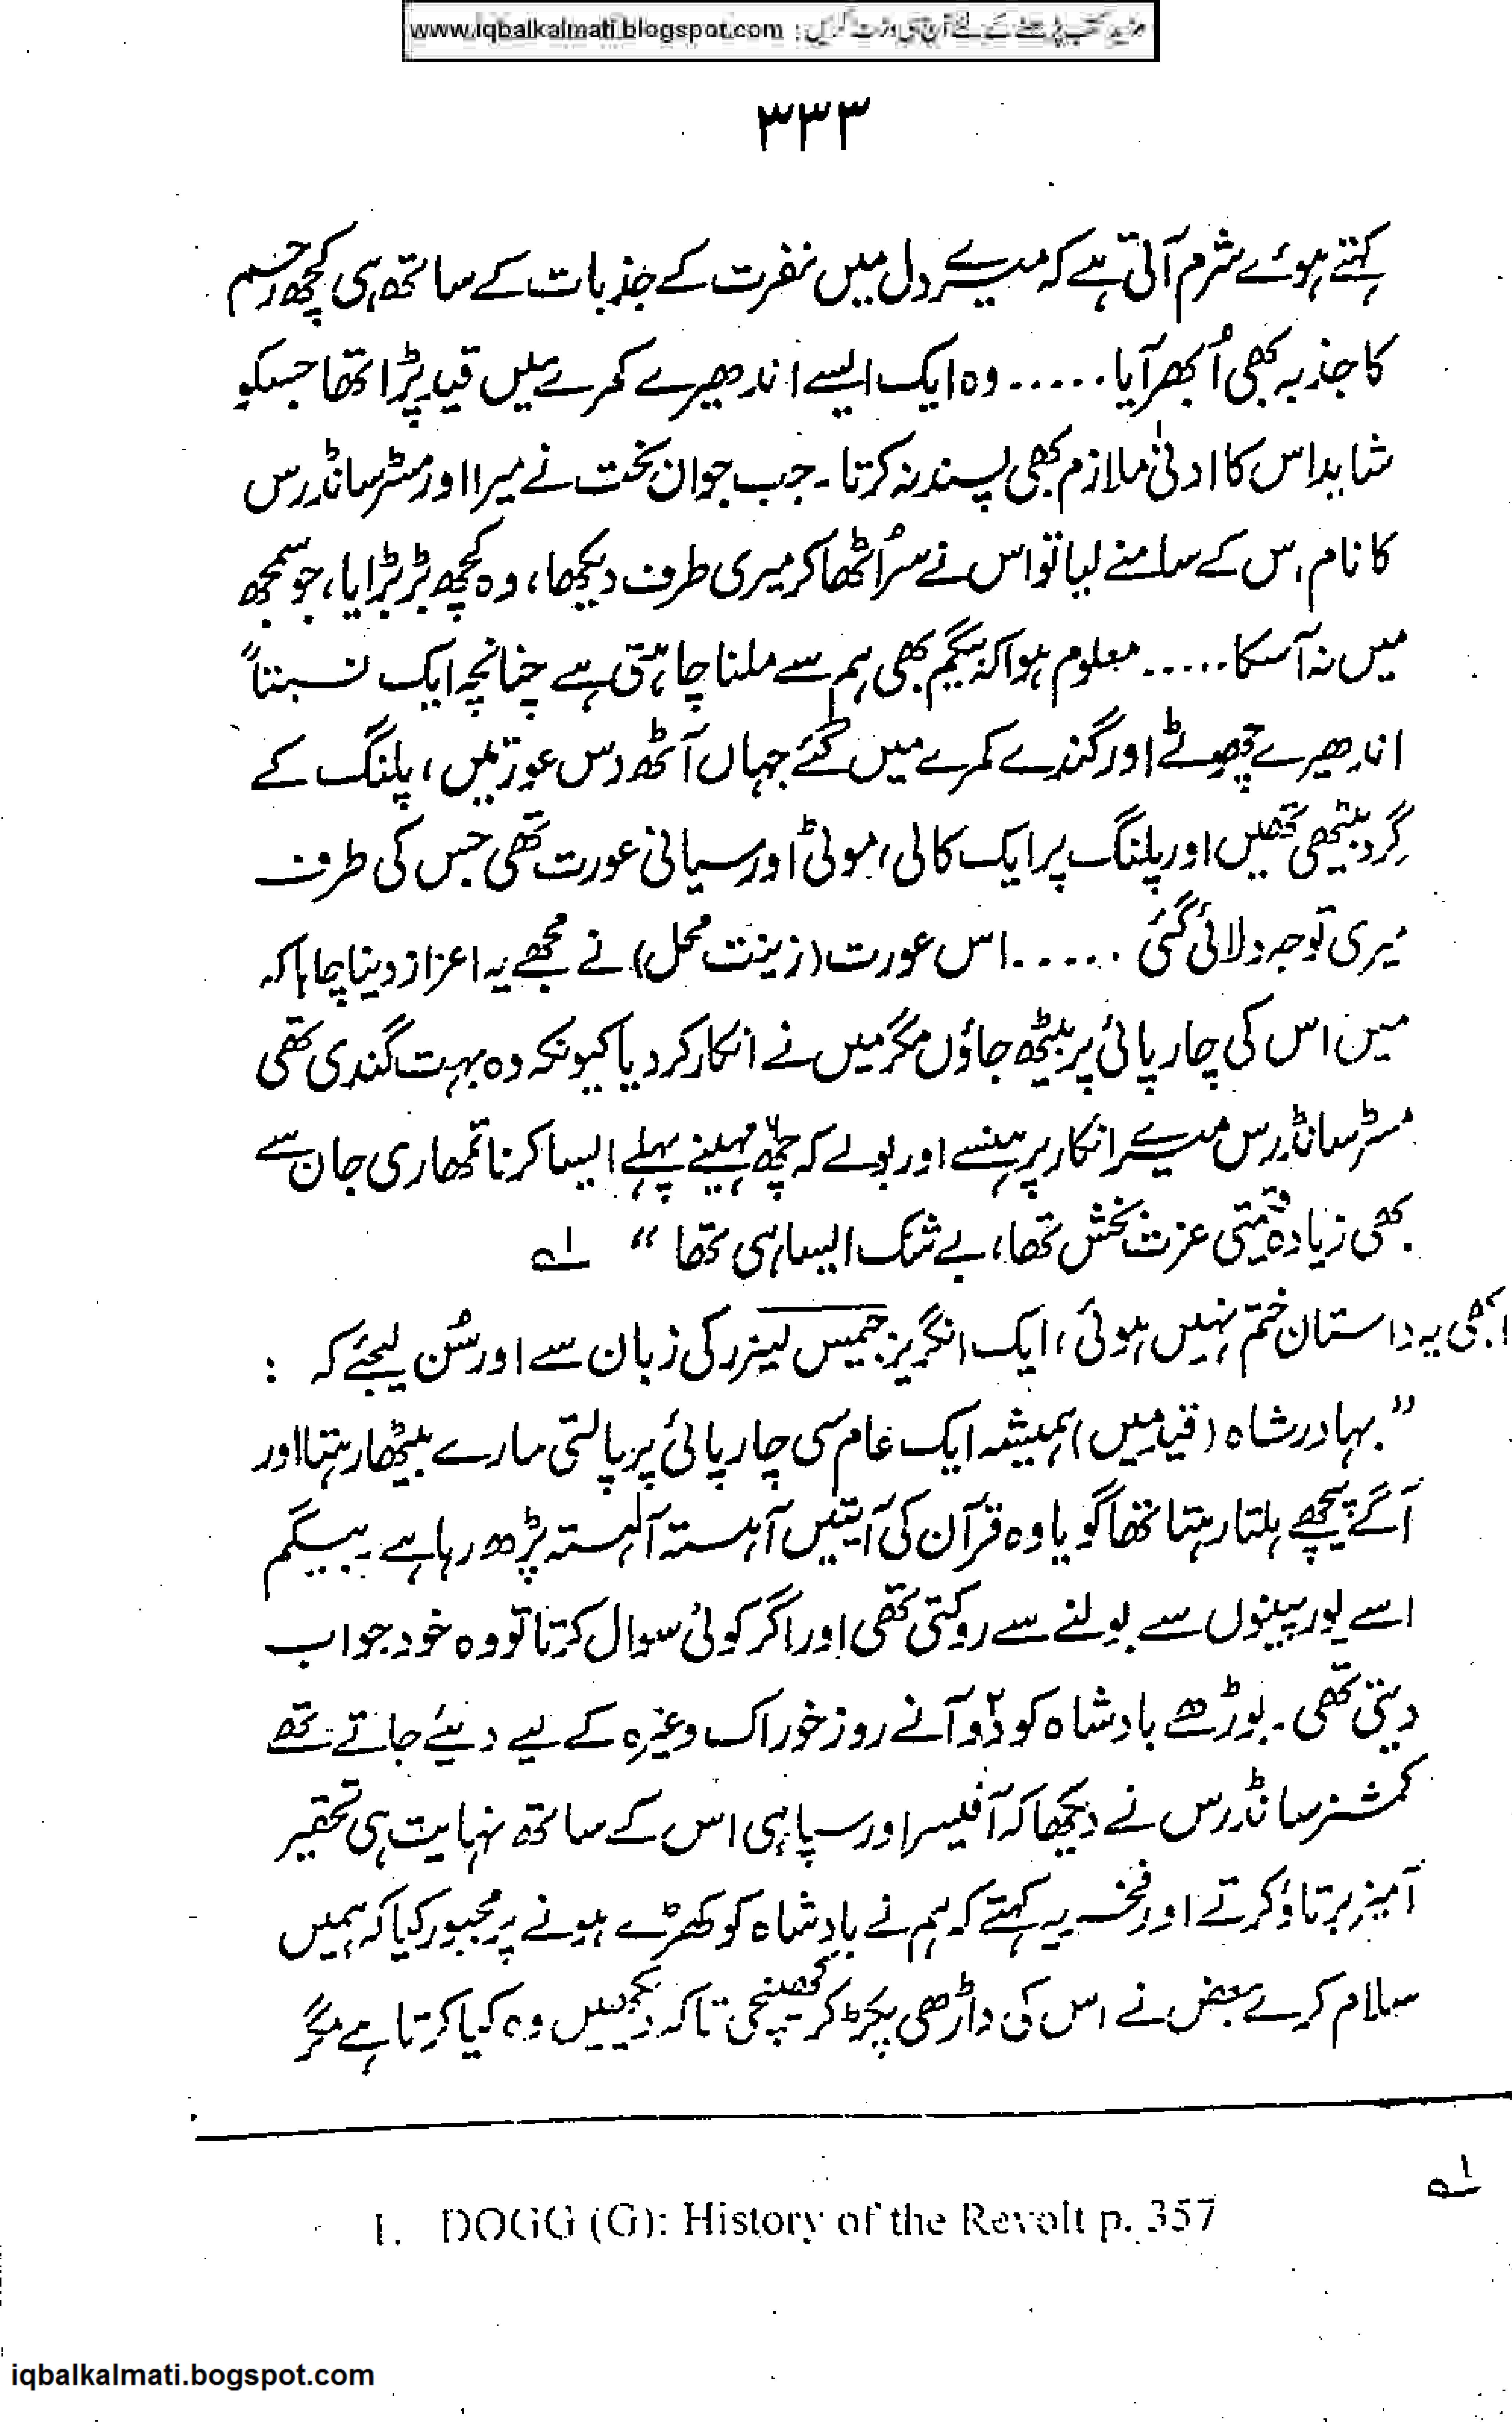 مزید کتب پڑھنے کے لئے آج ہی وزٹ کریں : www.iqbalkalmati.blogspot.com
۳۳۳
کہتے ہوئے شرم آتی ہے کہ میرے دل میں نفرت کے جذبات کے ساتھ ہی کچھ رحم
کا جذبہ بھی اُبھر آیا ..... وہ ایک ایسے اندھیرے کمرے میں قید پڑا تھا جسکو
شاید اس کا ادنیٰ ملازم بھی پسند نہ کرتا ۔ جب جواں بخت نے میرا اور مسٹر سانڈرس
کا نام اس کے سامنے لیا تو اس نے سر اُٹھا کر میری طرف دیکھا، وہ کچھ بڑبڑایا، جو سمجھ
میں نہ آسکا ..... معلوم ہوا کہ بیگم بھی ہم سے ملنا چاہتی ہے چنانچہ ایک نسبتاً
اندھیرے چھوٹے اور گندے کمرے میں گئے جہاں آٹھ دس عورتیں، پلنگ کے
گِرد بیٹھی تھیں اور پلنگ پر ایک کالی، موٹی اور سیانی عورت تھی جس کی طرف
میری توجہ دلائی گئی ..... اس عورت (زینت محل) نے مجھے یہ اعزاز دینا چاہا کہ
میں اس کی چارپائی پر بیٹھ جاؤں مگر میں نے انکار کر دیا کیونکہ وہ بہت گندی تھی
مسٹر سانڈرس میرے انکار پر ہنسے اور بولے کہ چھ ۶ مہینے پہلے ایسا کرنا تمھاری جان سے
بھی زیادہ قیمتی عزت بخش تھا، بے شک ایسا ہی تھا “ ۱؎
ابھی یہ داستان ختم نہیں ہوئی، ایک انگریز جیمس لینرر کی زبان سے اور سُن لیجئے کہ :
” بہادر شاہ (قید میں) ہمیشہ ایک عام سی چارپائی پر پالتی مارے بیٹھا رہتا اور
آگے پیچھے ہلتا رہتا تھا گویا وہ قرآن کی آیتیں آہستہ آہستہ پڑھ رہا ہے ۔ بیگم
اسے یورپینوں سے بولنے سے روکتی تھی اور اگر کوئی سوال کرتا تو وہ خود جواب
دیتی تھی ۔ بوڑھے بادشاہ کو دو ۲ آنے روز خوراک وغیرہ کے لیے دیئے جاتے تھے
کمشنر سانڈرس نے دیکھا کہ آفیسر اور سپاہی اس کے ساتھ نہایت ہی تحقیر
آمیز برتاؤ کرتے اور فخریہ کہتے کہ ہم نے بادشاہ کو کھڑے ہونے پر مجبور کیا کہ ہمیں
سلام کرے بعض نے اس کی داڑھی پکڑ کر کھینچی تاکہ دیکھیں وہ کیا کرتا ہے مگر
۱؎
1. DOGG (G): History of the Revolt p. 357
iqbalkalmati.bogspot.com